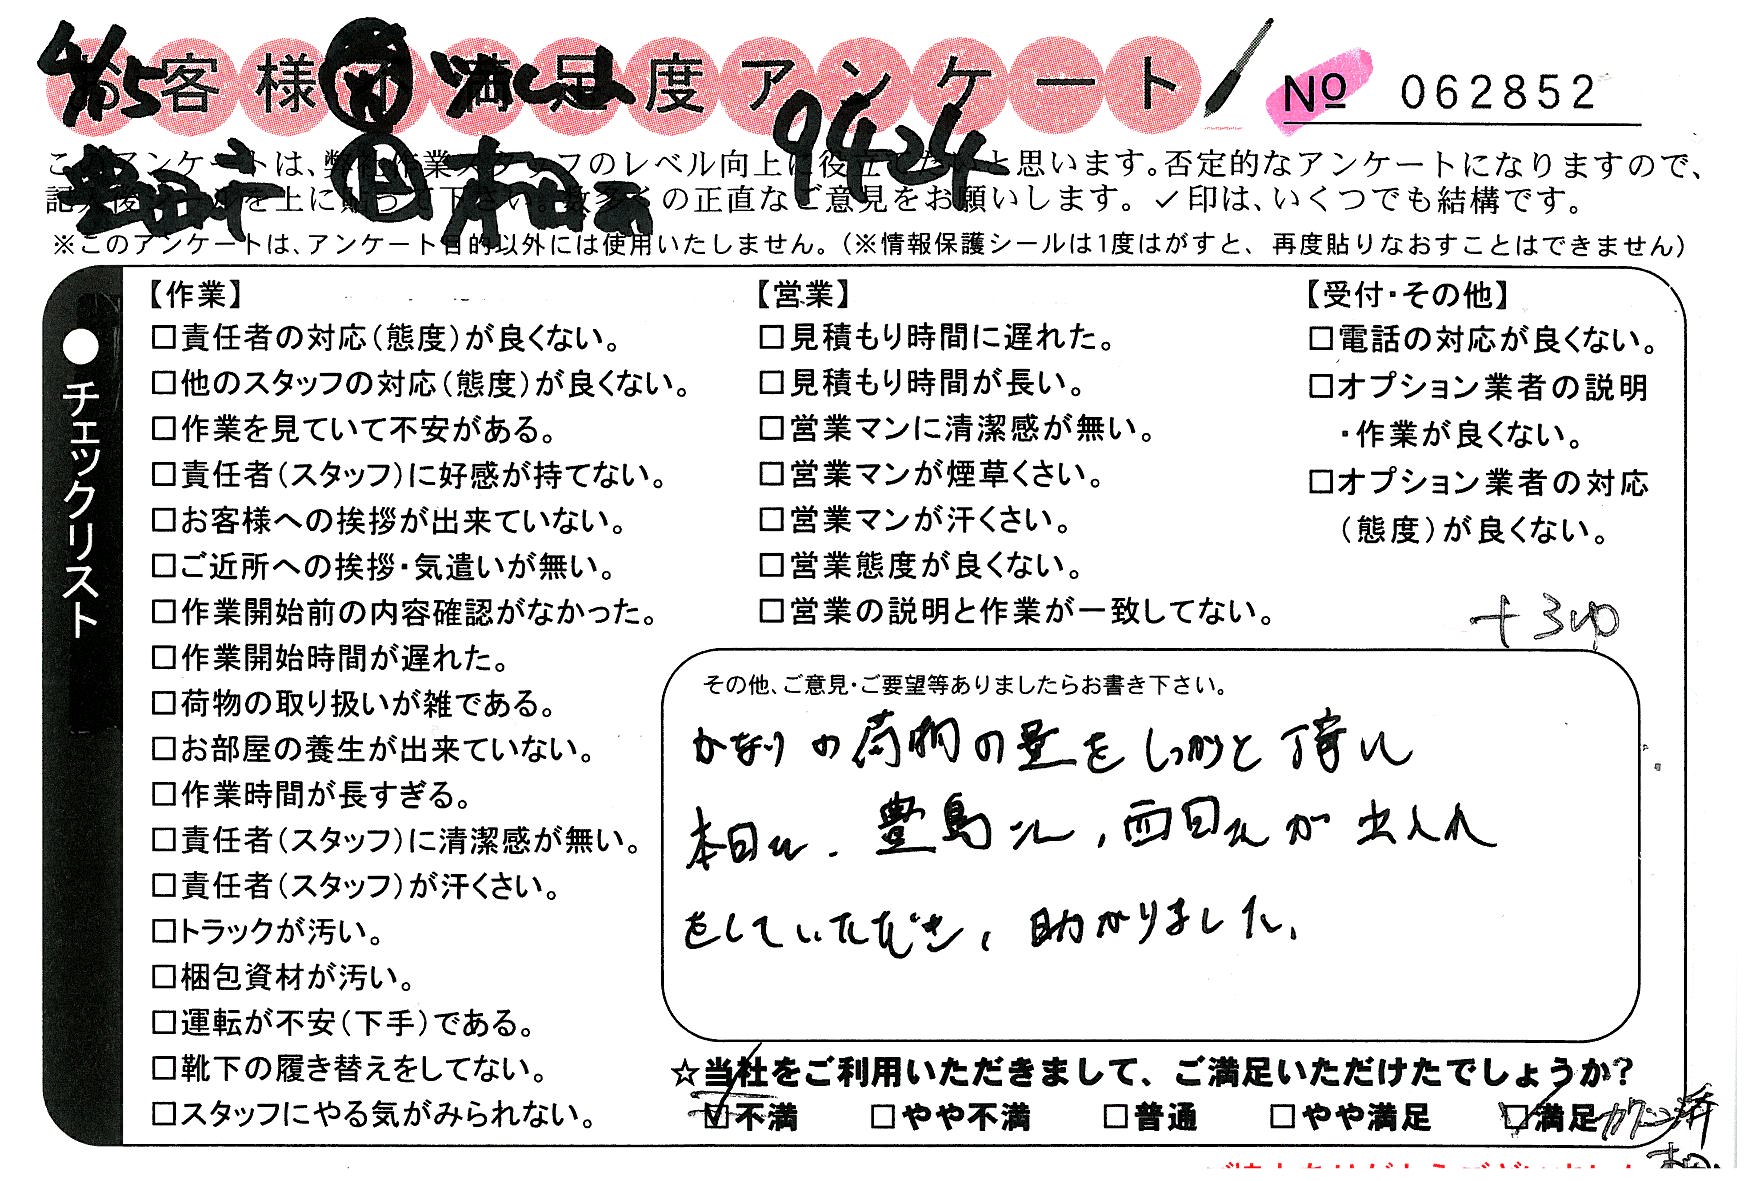 お客様 満足度アンケート
No 062852
4/15
9424
このアンケートは、弊社作業スタッフのレベル向上に役立てたいと思います。否定的なアンケートになりますので、
記入後シールを上に貼って下さい。数多くの正直なご意見をお願いします。✓印は、いくつでも結構です。
※このアンケートは、アンケート目的以外には使用いたしません。（※情報保護シールは1度はがすと、再度貼りなおすことはできません）
●チェックリスト
【作業】
□責任者の対応（態度）が良くない。
□他のスタッフの対応（態度）が良くない。
□作業を見ていて不安がある。
□責任者（スタッフ）に好感が持てない。
□お客様への挨拶が出来ていない。
□ご近所への挨拶・気遣いが無い。
□作業開始前の内容確認がなかった。
□作業開始時間が遅れた。
□荷物の取り扱いが雑である。
□お部屋の養生が出来ていない。
□作業時間が長すぎる。
□責任者（スタッフ）に清潔感が無い。
□責任者（スタッフ）が汗くさい。
□トラックが汚い。
□梱包資材が汚い。
□運転が不安（下手）である。
□靴下の履き替えをしてない。
□スタッフにやる気がみられない。
【営業】
□見積もり時間に遅れた。
□見積もり時間が長い。
□営業マンに清潔感が無い。
□営業マンが煙草くさい。
□営業マンが汗くさい。
□営業態度が良くない。
□営業の説明と作業が一致してない。
【受付・その他】
□電話の対応が良くない。
□オプション業者の説明
・作業が良くない。
□オプション業者の対応
（態度）が良くない。
その他、ご意見・ご要望等ありましたらお書き下さい。
かなりの荷物の量をしっかりと丁寧に
本日は、豊島さん、西田さんが出入れ
をしていただき、助かりました。
☆当社をご利用いただきまして、ご満足いただけたでしょうか?
☑不満 □やや不満 □普通 □やや満足 ☑満足